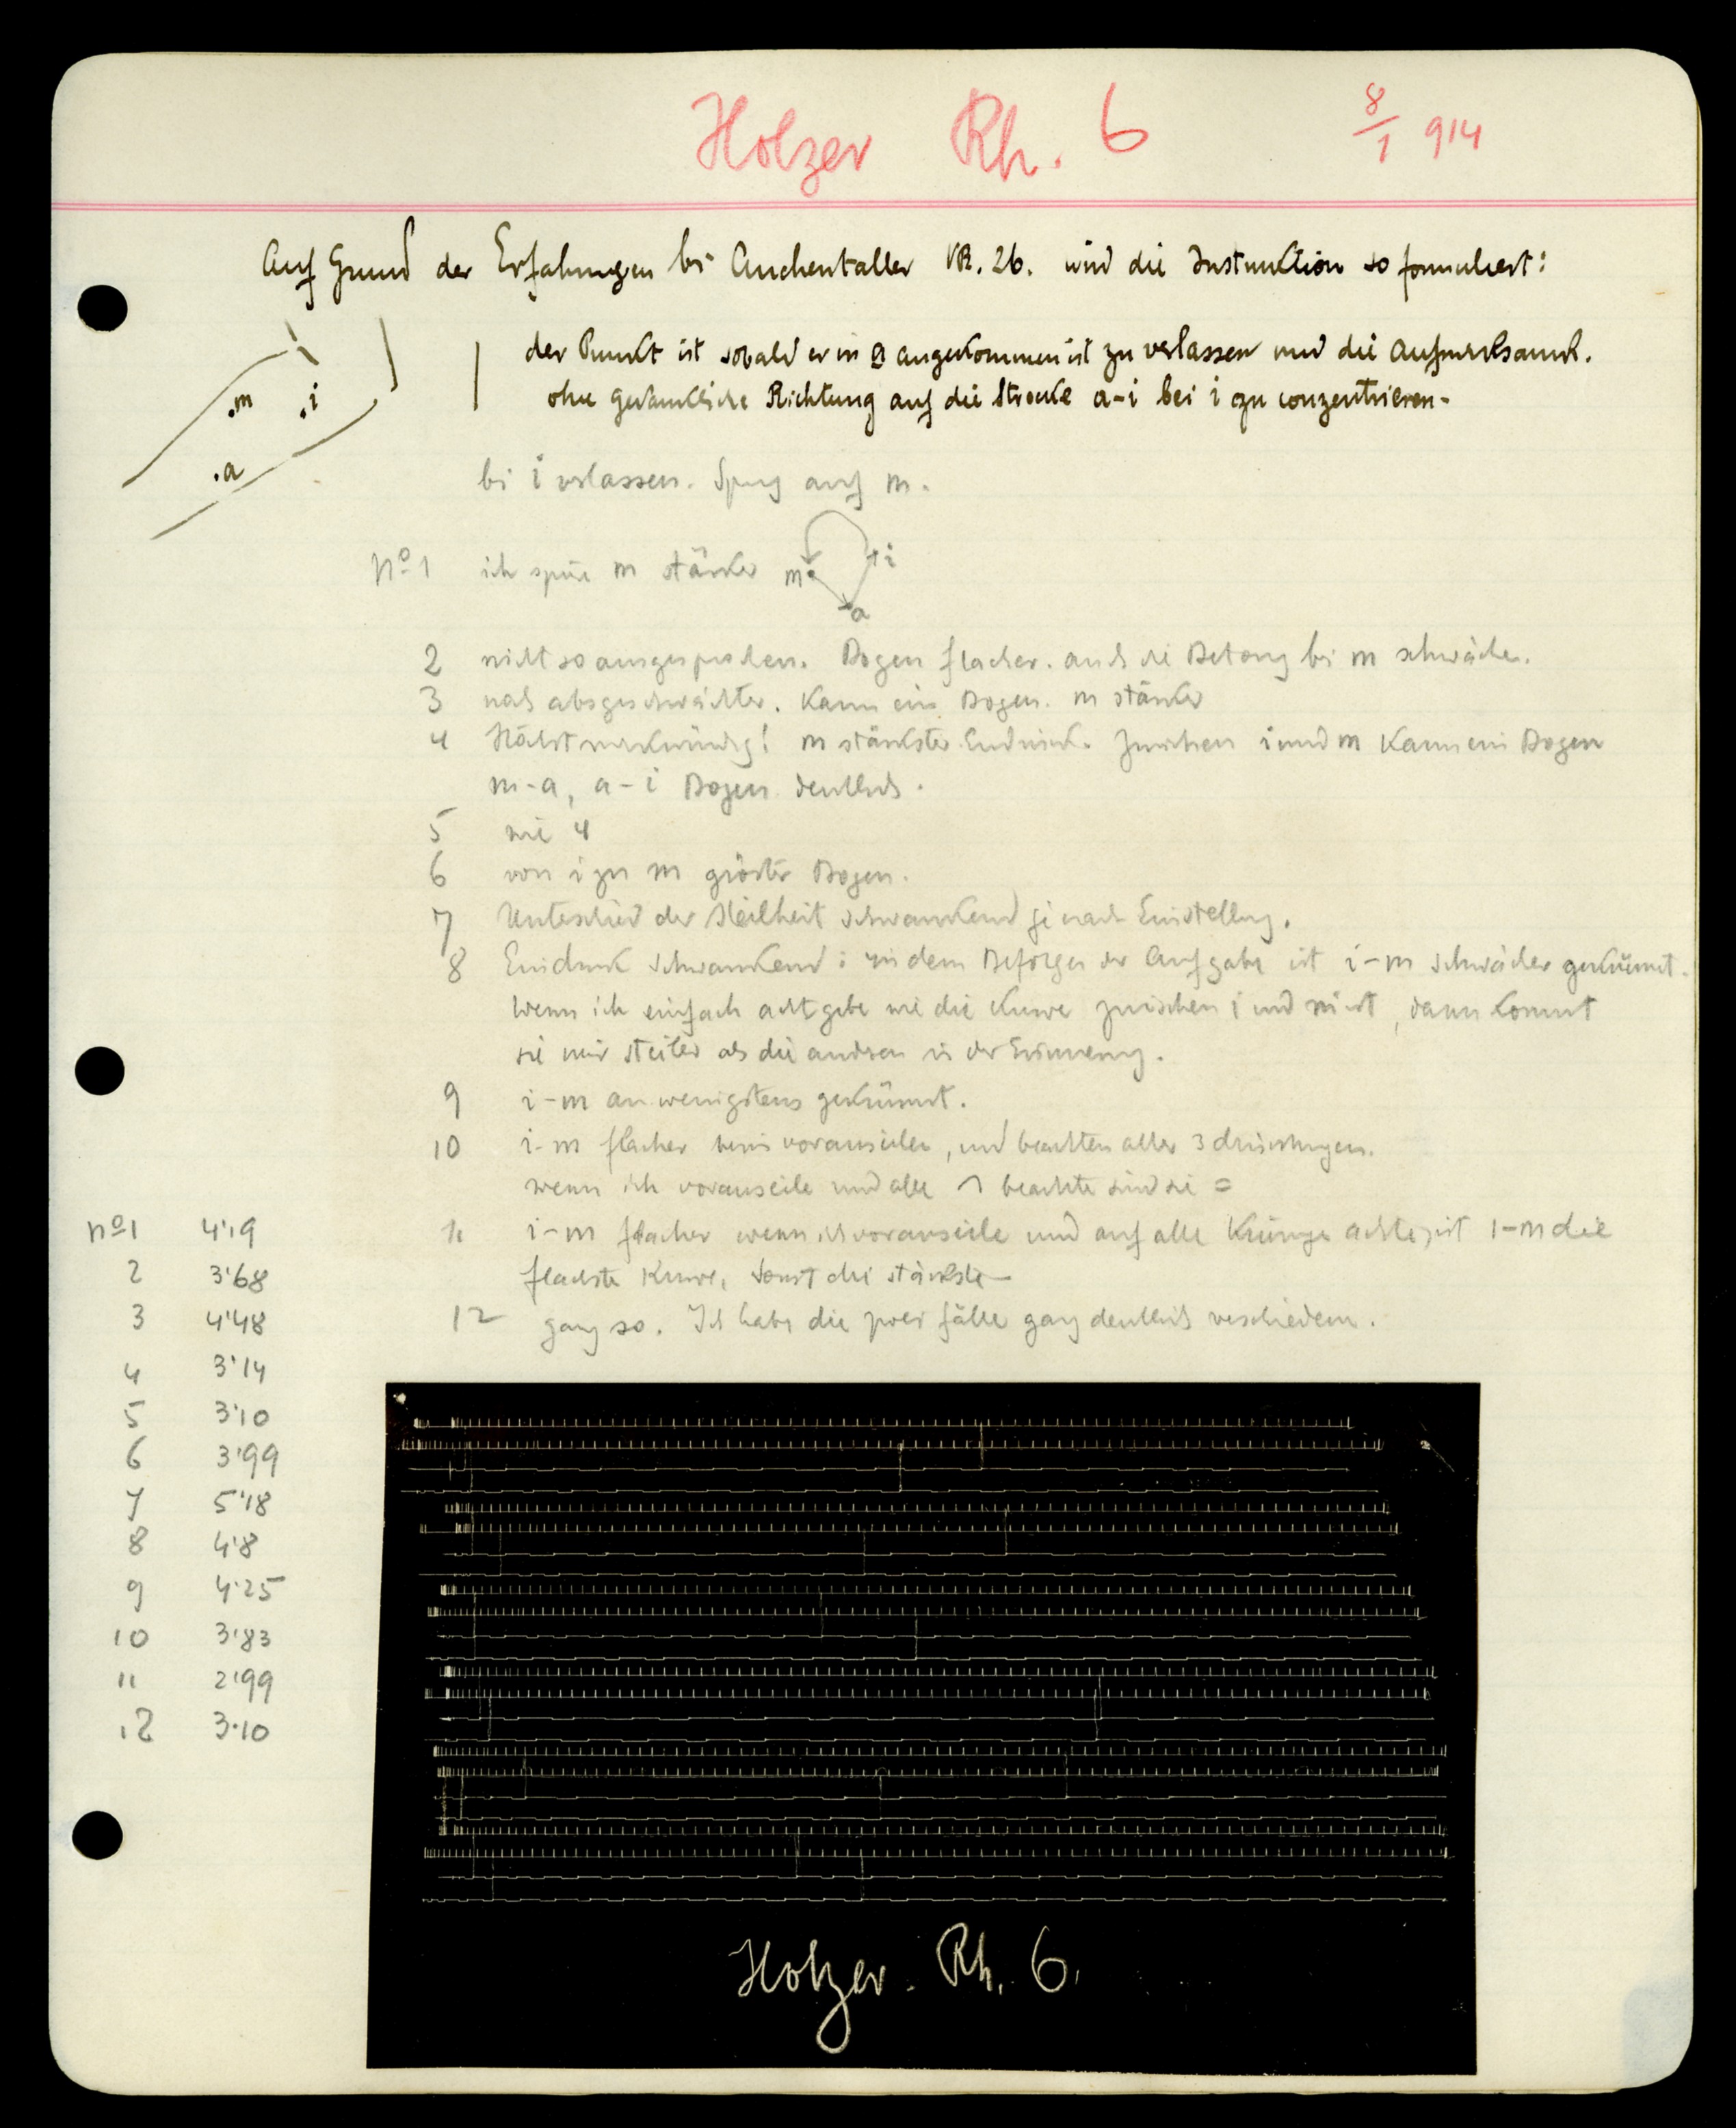 Holzer Rh. 6 8/1 914
Auf Grund der Erfahrungen bei Auchentaller VR. 26. wird die Instruktion so formuliert:
der Punkt ist sobald er in a angekommen ist zu verlassen und die Aufmerksamk.
ohne gedankliche Richtung auf die Strecke a-i bei i zu conzentrieren-
.m .i
.a
bei i verlassen. Sprung auf m.
No 1 ich spüre m stärker m i
a
2 nicht so ausgesprochen. Bogen flacher. auch die Betong bei m schwächer.
3 noch abgeschwächter. Kaum ein Bogen. m stärker
4 Höchst merkwürdig! m stärkster Eindruck. Zwischen i und m Kaum ein Bogen
m-a, a-i Bogen deutlich.
5 wie 4
6 von i zu m größter Bogen.
7 Unterschied der Steilheit schwankend je nach Einstellung.
8 Eindruck schwankend: in dem Befolgen der Aufgabe ist i-m schwächer gekrümmt.
Wenn ich einfach acht gebe wie die Kurve zwischen i und m ist, dann kommt
sie mir steiler als die andren in der Erinnerung.
9 i-m am wenigstens gekrümmt.
10 i-m flacher beim vorauseilen, und beachten aller 3
wenn ich vorauseile und alle beachte sind sie =
11 i-m flacher wenn ich vorauseile und auf alle achte, ist i-m die
flachste Kurve, sonst die stärkste
12 ganz so. Ich habe die zwei Fälle ganz deutlich verschieden.
No 1 4'19
2 3'68
3 4'48
4 3'14
5 3'10
6 3'99
7 5'18
8 4'8
9 4'25
10 3'83
11 2'99
12 3·10
Holzer. Rh. 6.